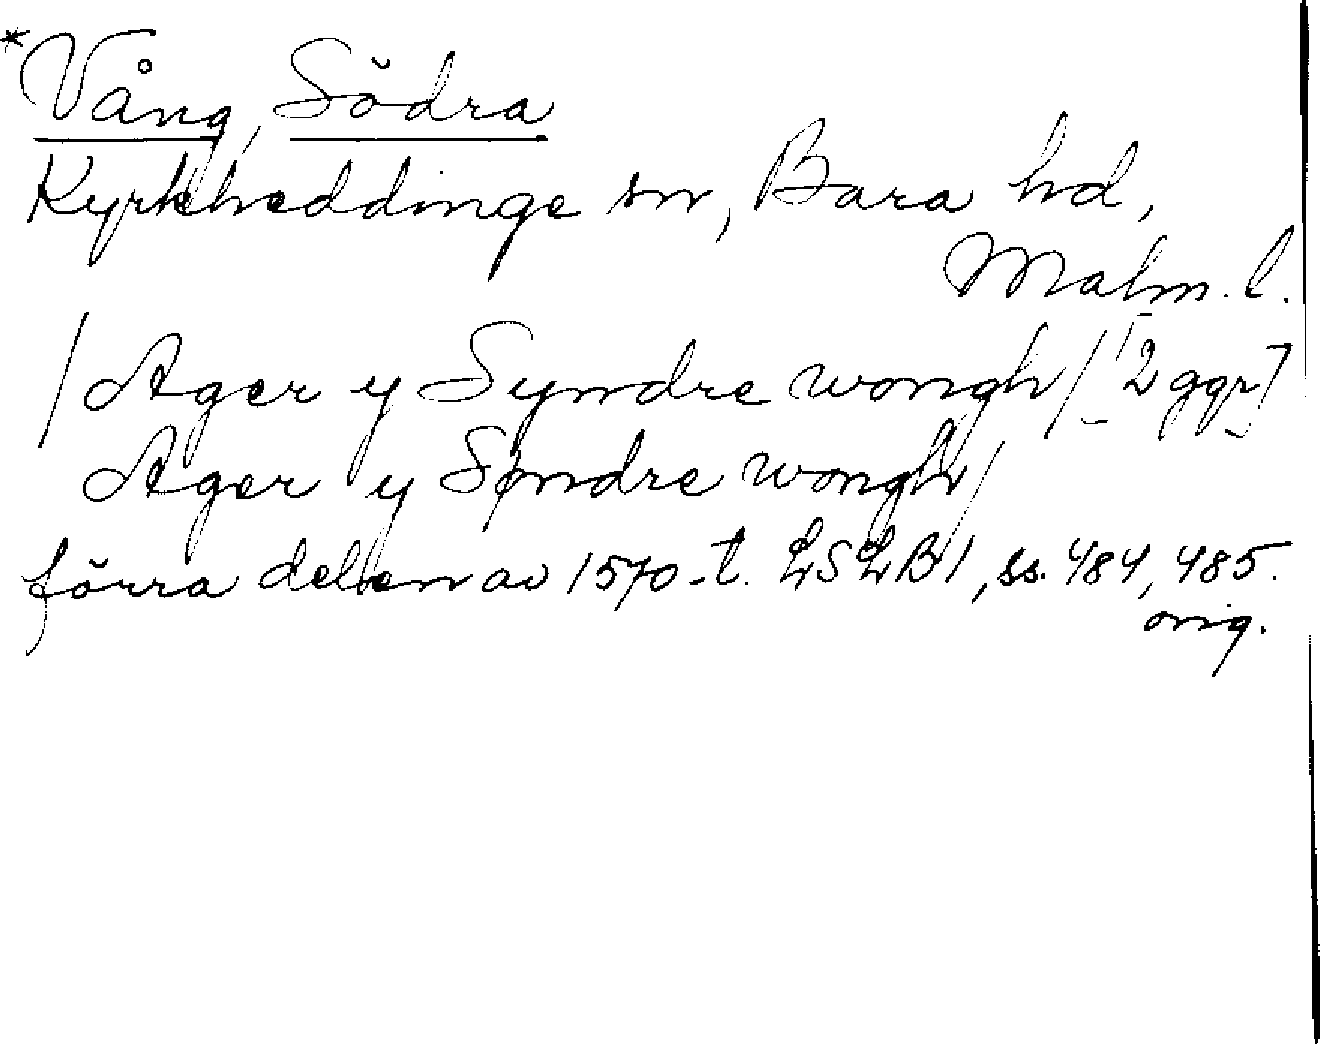 *Vång, Södra
Kyrkheddinge sn, Bara hd,
Malm. l.
/Ager y Syndre wongh/ [2 ggr]
Ager y Søndre wongh/
förra delen av 1570-t. LSLB1, ss. 484, 485.
orig.